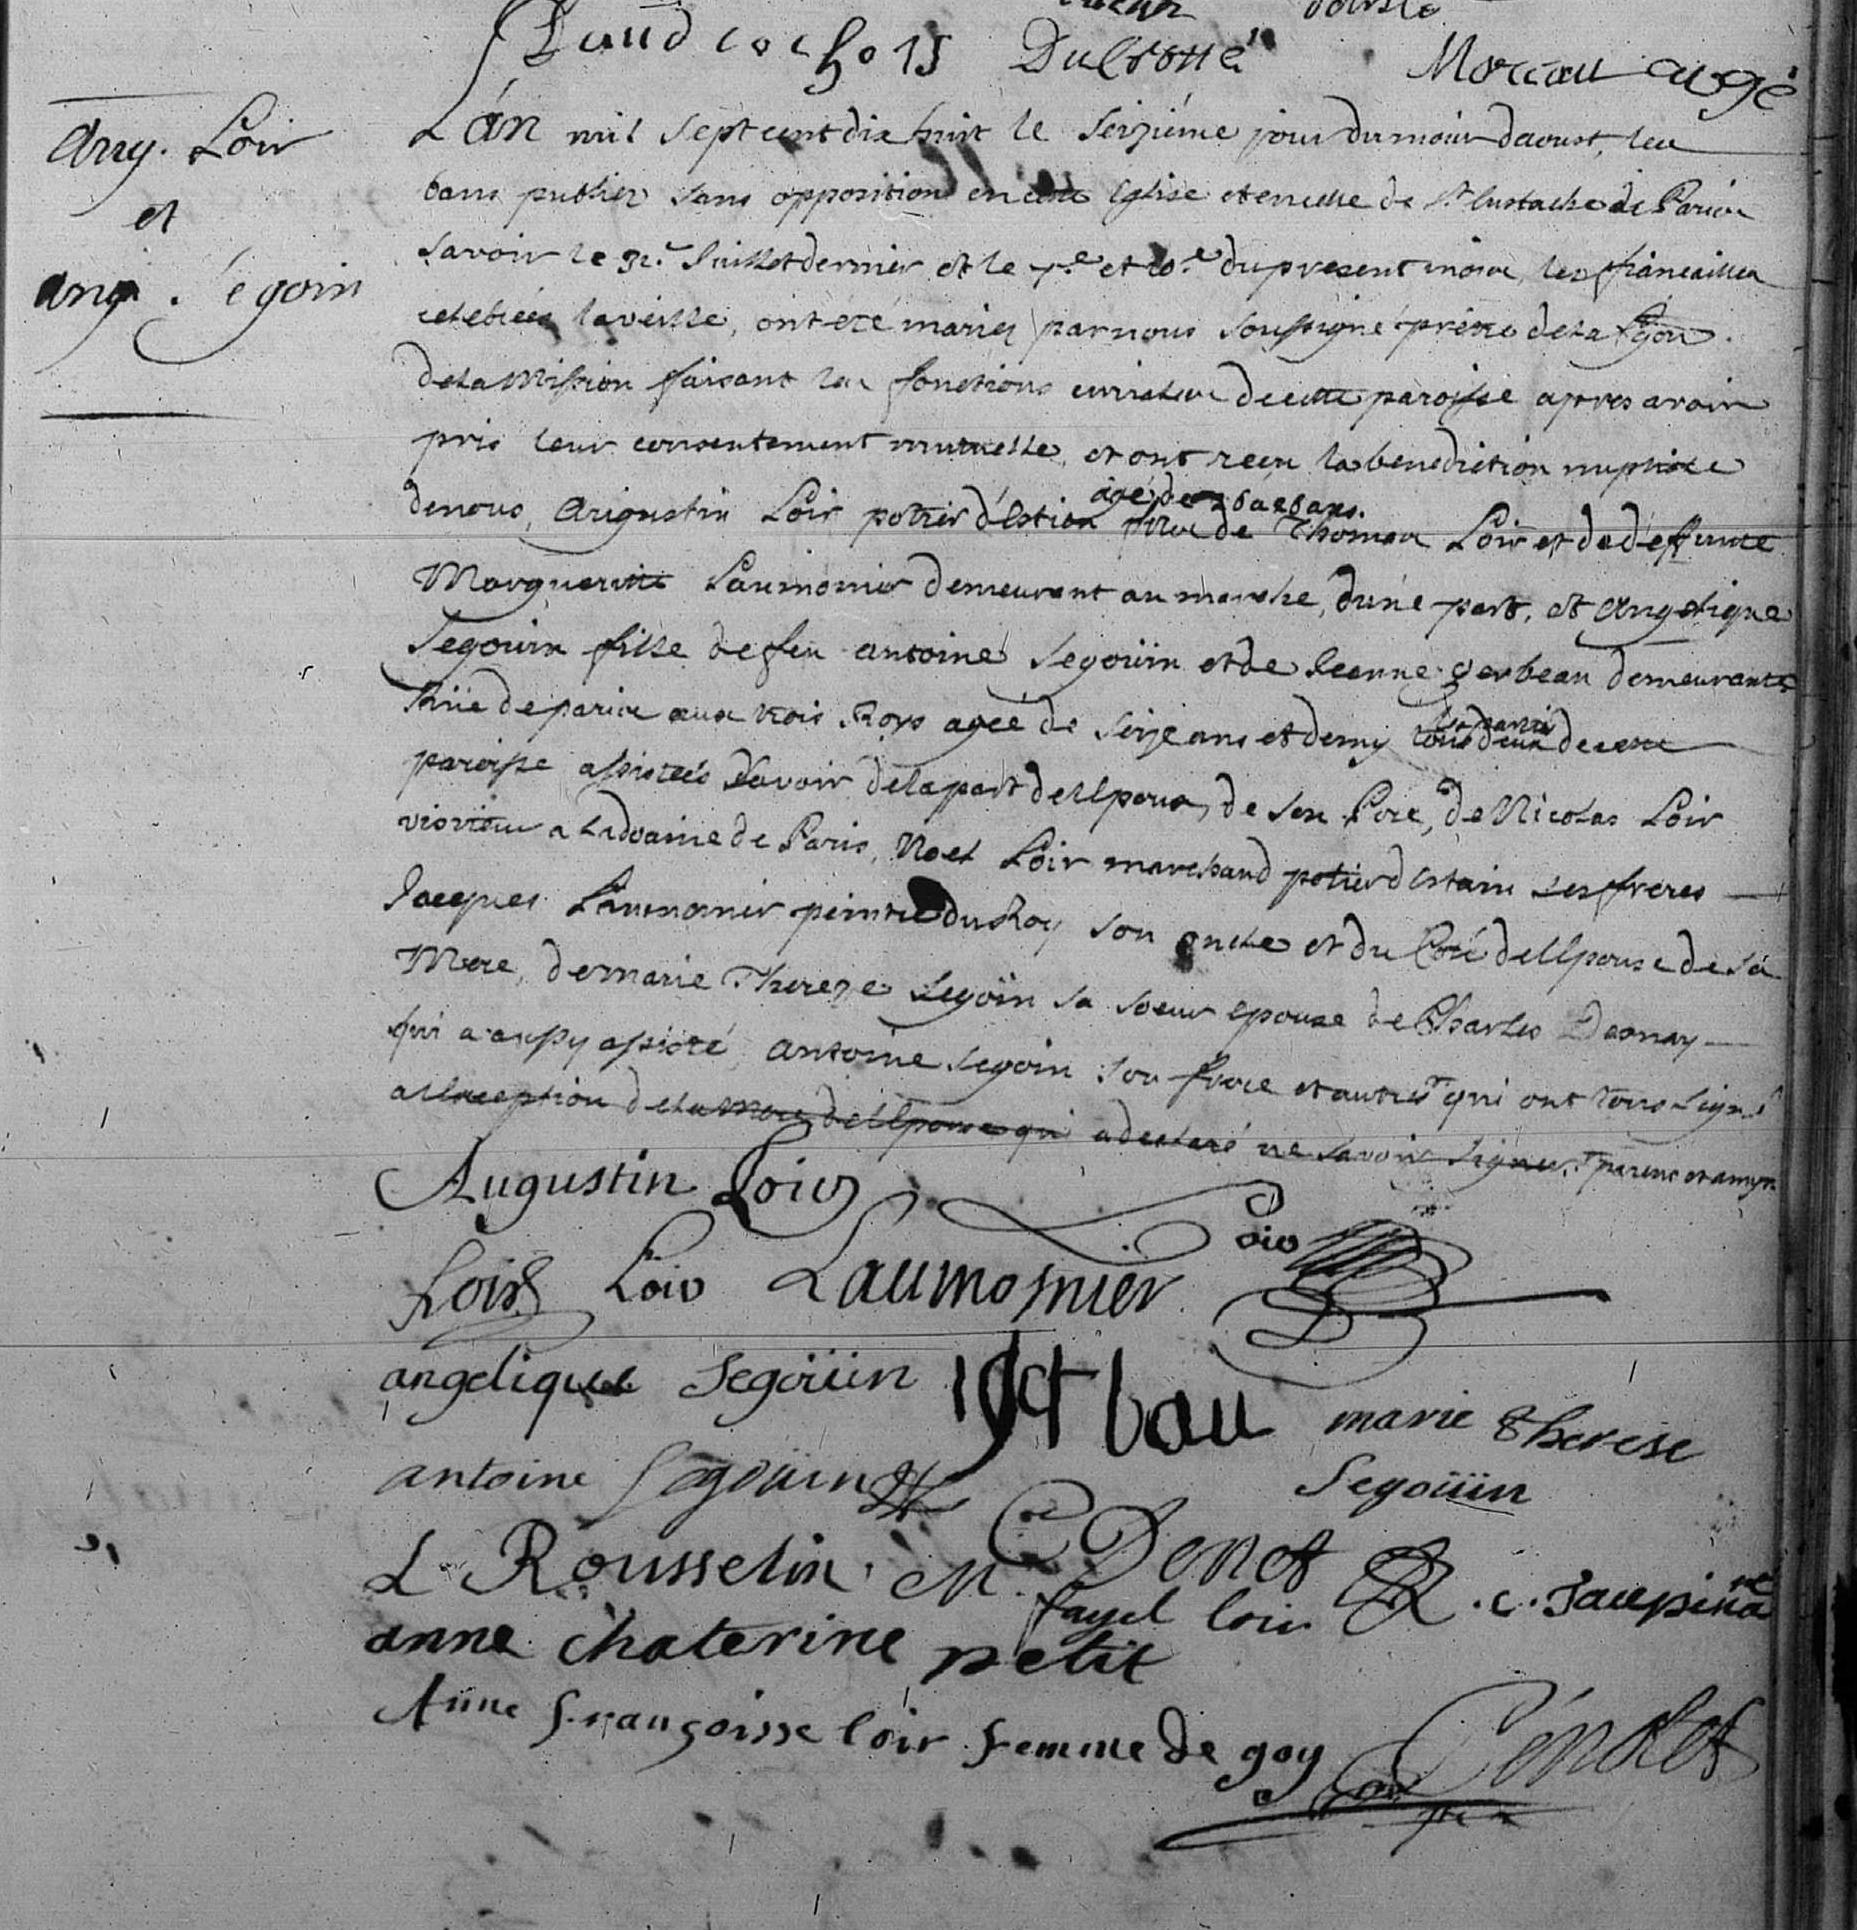 Moreau
Aug. Loir
et
ang. Segoin
L'än mil sept cent dix huit le seizième jour du mois d'aoust, les
bans publiez sans opposition en cette Eglise et en celle de St. Eustache de Paris
savoir le 31e. Juillet dernier et le 7e. et 10e. du present mois, les fiancailles
celebrées la veille, ont été mariez par nous soussigné prêtre de la Cgon.
de la Mission faisant les fonctions curiales de cette paroisse apres avoir
pris leur consentement mutuelle, et ont recu la benediction nuptiale
agé de 26 ans.
de nous, Augustin Loir potier d'Estain fils de Thomas Loir et de deffunte
Marguerite Laumonier demeurant au marché, d'une part, et Angelique
Segouin fille de feu antoine Segoüin et de Jeanne gerbeau demeurante
Rüe de paris aux trois Roys agée de seize ans et demy tous deux de cette
paroisse assistés savoir de la part de l'Epoux, de son Pere, de Nicolas Loir
visiteur a la doüaine de Paris, Noel Loir marchand potier d'estain ses freres
Jacques Laumonier peintre du Roy son oncle et du Coté de l'Epouse de sa
Mere, de Marie Thereze Segoüin sa soeur epouze de Charles
qui a aussy assisté, antoine segoin son frere et autres qui ont tous signé
a l'exception de la mere de l'Epouse qui a declaré ne savoir signer. parens et amys
Augustin Loir
Loir
Loir Loir Laumosnier
angelique Segoüin marie Therese
antoine Segouin Segoüin
L Rousselin
M. fayel loir
anne chaterine petit
Anne Françoisse loir femme de goy